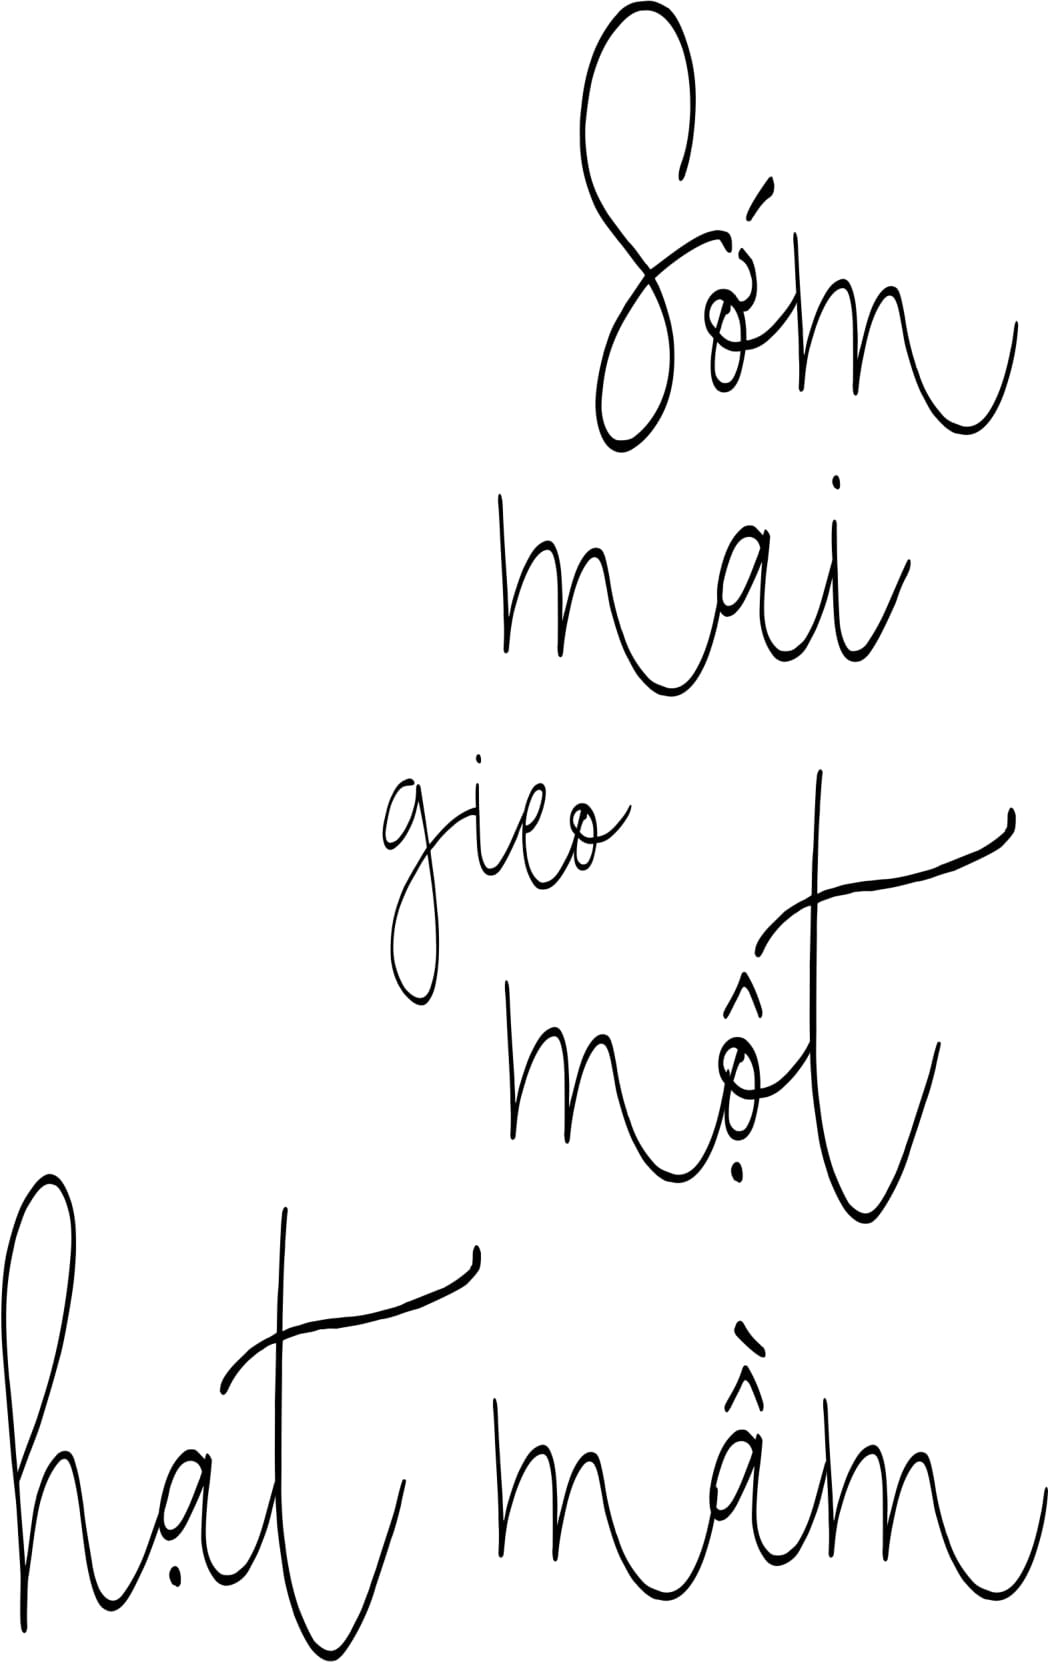 Sớm
mai
gieo
một
hạt mầm